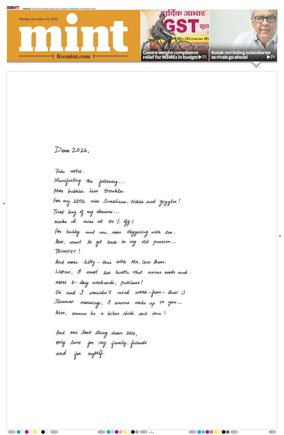 Monday, December 29, 2025
mint
livemint.com
हार्दिक आभार
GST
Centre weighs compliance
relief for MSMEs in budget
Kotak not listing subsidiaries
as rivals go ahead
Dear 2026,
Take notes.
Manifesting the following...
More bubble. Less trouble.
For my little miss Sunshine, tickle and giggles!
That bag of my dreams...
make it mine at 50% off!
For hubby and me, more staggering with Leo.
Also, want to get back to my old passion...
TRUMPET!
And more kitty-time with Mr. Coco Bean.
Listen, I want less hustle that never ends and
more 3-day weekends, puhleese!
Oh and I wouldn't mind work-from-thus :)
Slowww mornings, I wanna wake up to you...
Also, wanna be a biker chick only tone!
And one last thing dear 2026,
only love for my family, friends
and for myself.